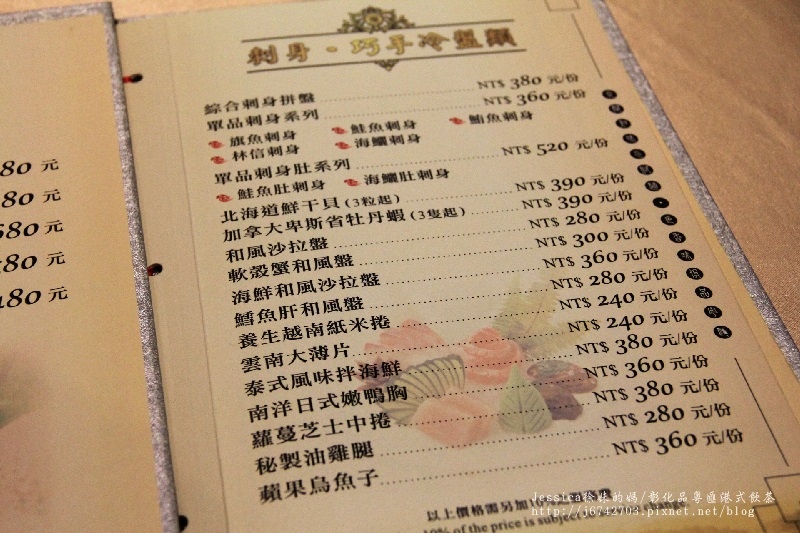 刺身・巧手冷盤類
綜合刺身拼盤 NT$ 380 元/份
單品刺身系列 NT$ 360 元/份
旗魚刺身 鮭魚刺身 鮪魚刺身
林信刺身 海鱺刺身
單品刺身肚系列 NT$ 520 元/份
鮭魚肚刺身 海鱺肚刺身
北海道鮮干貝(3粒起) NT$ 390 元/份
加拿大卑斯省牡丹蝦(3隻起) NT$ 390 元/份
和風沙拉盤 NT$ 280 元/份
軟殼蟹和風盤 NT$ 300 元/份
海鮮和風沙拉盤 NT$ 360 元/份
鱈魚肝和風盤 NT$ 280 元/份
養生越南紙米捲 NT$ 240 元/份
雲南大薄片 NT$ 240 元/份
泰式風味拌海鮮 NT$ 380 元/份
南洋日式嫩鴨胸 NT$ 360 元/份
蘿蔓芝士中捲 NT$ 380 元/份
秘製油雞腿 NT$ 280 元/份
蘋果烏魚子 NT$ 360 元/份
以上價格需另加10%
10% of the price is subject
change
80 元
80 元
580 元
580 元
480 元
Jessica徐妹的媽/彰化品粵軒港式飲茶
http://j6742703.pixnet.net/blog